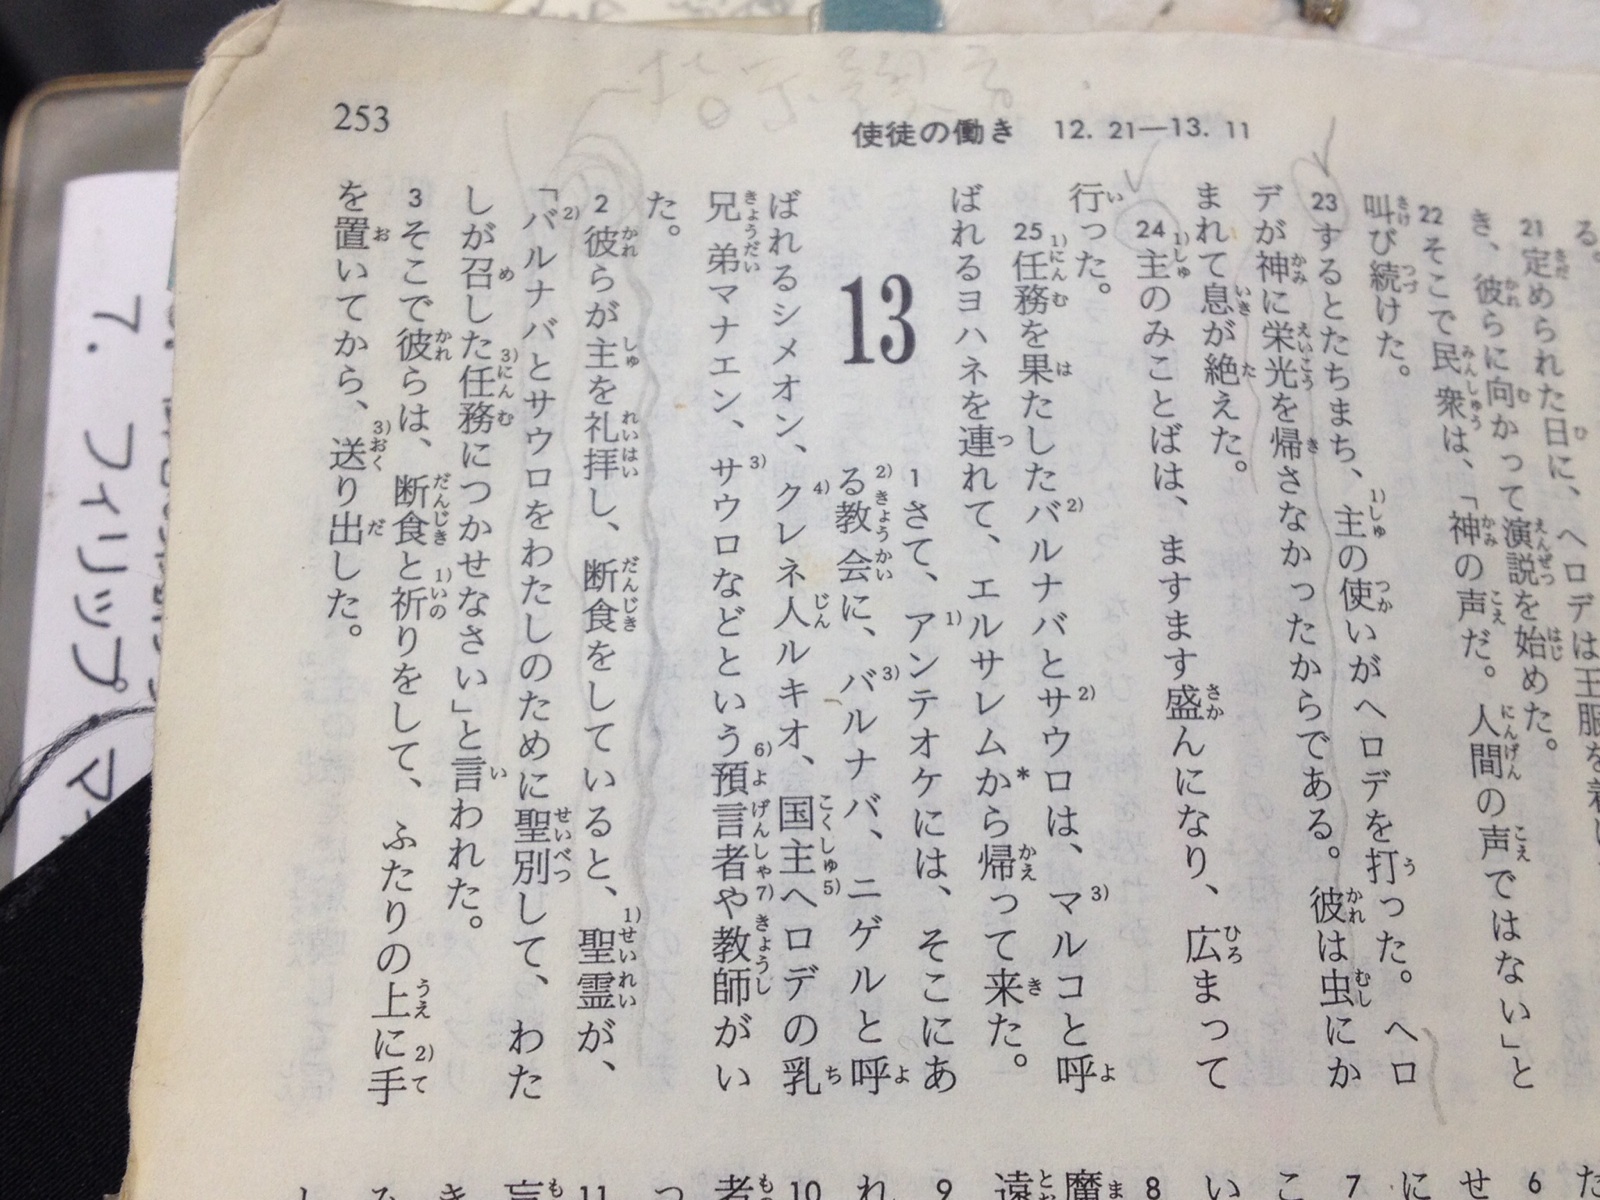 253
使徒の働き 12. 21—13. 11
る。
21 定められた日に、ヘロデは王服を着
き、彼らに向かって演説を始めた。
22 そこで民衆は、「神の声だ。人間の声ではない」と
叫び続けた。
23 するとたちまち、主の使いがヘロデを打った。ヘロ
デが神に栄光を帰さなかったからである。彼は虫にか
まれて息が絶えた。
24 主のみことばは、ますます盛んになり、広まって
行った。
25 任務を果たしたバルナバとサウロは、マルコと呼
ばれるヨハネを連れて、エルサレムから帰って来た。
13
1 さて、アンテオケには、そこにあ
る教会に、バルナバ、ニゲルと呼
ばれるシメオン、クレネ人ルキオ、国主ヘロデの乳
兄弟マナエン、サウロなどという預言者や教師がい
た。
2 彼らが主を礼拝し、断食をしていると、聖霊が、
「バルナバとサウロをわたしのために聖別して、わた
しが召した任務につかせなさい」と言われた。
3 そこで彼らは、断食と祈りをして、ふたりの上に手
を置いてから、送り出した。
7. フィリップ マ